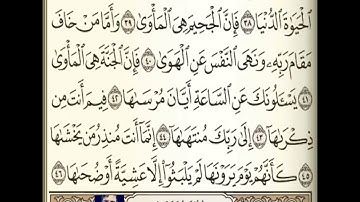 ٱلْحَيَوٰةَ ٱلدُّنْيَا ٣٨ فَإِنَّ ٱلْجَحِيمَ هِىَ ٱلْمَأْوَىٰ ٣٩ وَأَمَّا مَنْ خَافَ
مَقَامَ رَبِّهِۦ وَنَهَى ٱلنَّفْسَ عَنِ ٱلْهَوَىٰ ٤٠ فَإِنَّ ٱلْجَنَّةَ هِىَ ٱلْمَأْوَىٰ
٤١ يَسْـَٔلُونَكَ عَنِ ٱلسَّاعَةِ أَيَّانَ مُرْسَىٰهَا ٤٢ فِيمَ أَنتَ مِن
ذِكْرَىٰهَا ٤٣ إِلَىٰ رَبِّكَ مُنتَهَىٰهَا ٤٤ إِنَّمَآ أَنتَ مُنذِرُ مَن يَخْشَىٰهَا
٤٥ كَأَنَّهُمْ يَوْمَ يَرَوْنَهَا لَمْ يَلْبَثُوٓا۟ إِلَّا عَشِيَّةً أَوْ ضُحَىٰهَا ٤٦